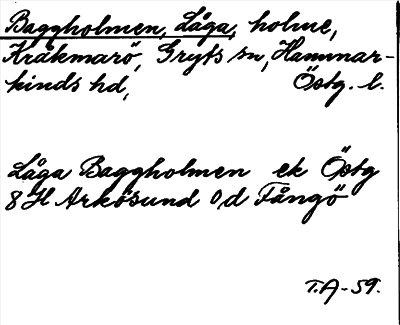 Baggholmen, Låga, holme,
Kråkmarö, Gryts sn, Hammar-
kinds hd, Östg. l.
Låga Baggholmen ek Östg
8 H Arkösund 0,d Fångö
T.A-59.